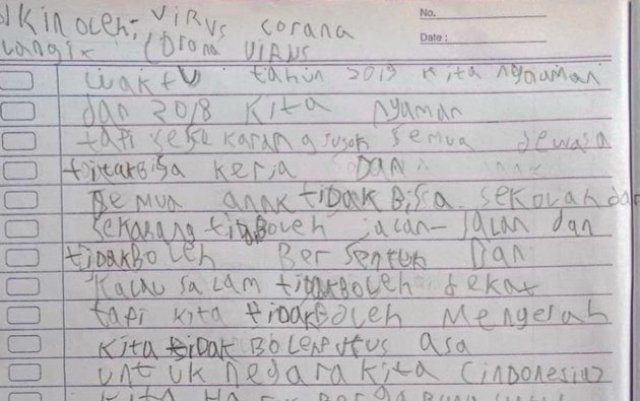 No.
Date :
dikin oleh; VIRUS corana
langit Corona VIRUS
waktu tahun 2019 kita nyauman
dan 2018 Kita nyaman
tapi sekarang susah semua dewasa
tidakbisa kerja DAN
semua anak tidAK BiSa sekolah dan
sekarang tidboleh jalan-jalan dan
tiDakBoleh Bersentuh Dan
Kalau salam tidakBoleh dekat
tapi kita tidakBoleh Mengerah
Kita tidak Boleh putus asa
untuk negara kita (indonesia)